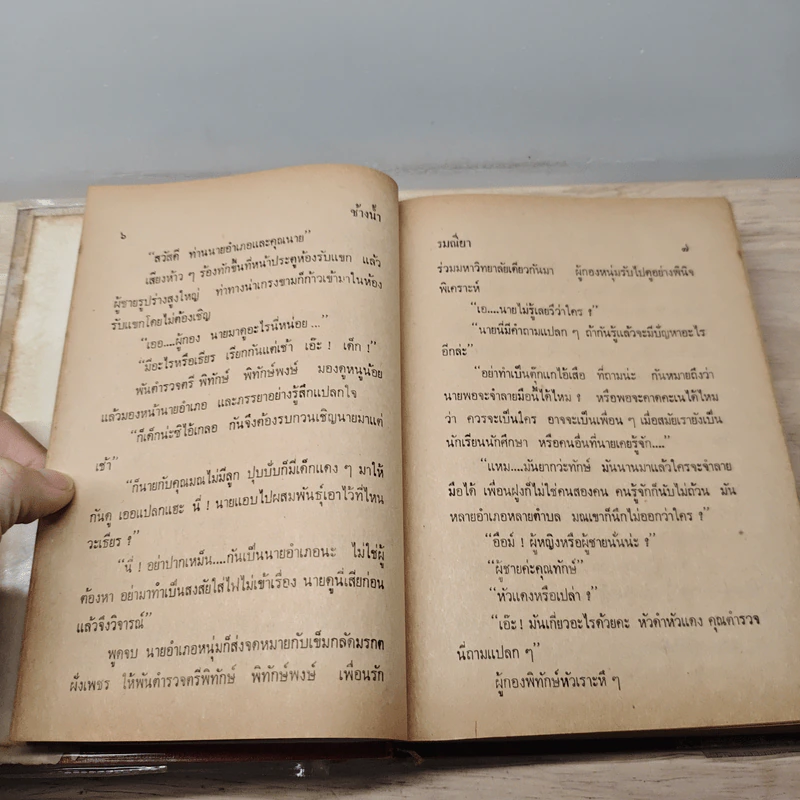 ๖
ช้างน้ำ
“สวัสดี ท่านนายอำเภอและคุณนาย”
เสียงห้าว ๆ ร้องทักขึ้นที่หน้าประตูห้องรับแขก แล้ว
ผู้ชายรูปร่างสูงใหญ่ ท่าทางน่าเกรงขามก็ก้าวเข้ามาในห้อง
รับแขกโดยไม่ต้องเชิญ
“เออ....ผู้กอง นายมาดูอะไรนี่หน่อย...”
“มีอะไรหรือเธียร เรียกกันแต่เช้า เอ๊ะ ! เด็ก !”
พันตำรวจตรี พิทักษ์ พิทักษ์พงษ์ มองดูหนูน้อย
แล้วมองหน้านายอำเภอ และภรรยาอย่างรู้สึกแปลกใจ
“ก็เด็กน่ะซิไอ้เกลอ กันจึงต้องรบกวนเชิญนายมาแต่
เช้า”
“ก็นายกับคุณมณไม่มีลูก ปุบปับก็มีเด็กแดง ๆ มาให้
กันดู เออแปลกแฮะ นี่ ! นายแอบไปผสมพันธุ์เอาไว้ที่ไหน
วะเธียร ?
“นี่ ! อย่าปากเหม็น....กันเป็นนายอำเภอนะ ไม่ใช่ผู้
ต้องหา อย่ามาทำเป็นสงสัยใส่ไฟไม่เข้าเรื่อง นายดูนี่เสียก่อน
แล้วจึงวิจารณ์”
พูดจบ นายอำเภอหนุ่มก็ส่งจดหมายกับเข็มกลัดมรกต
ฝังเพชร ให้พันตำรวจตรีพิทักษ์ พิทักษ์พงษ์ เพื่อนรัก
รมณียา
๗
ร่วมมหาวิทยาลัยเดียวกันมา ผู้กองหนุ่มรับไปดูอย่างพินิจ
พิเคราะห์
“เอ....นายไม่รู้เลยรึว่าใคร ?”
“นายนี่มีคำถามแปลก ๆ ถ้ากันรู้แล้วจะมีปัญหาอะไร
อีกล่ะ”
“อย่าทำเป็นตุ๊กแกไอ้เสือ ที่ถามน่ะ กันหมายถึงว่า
นายพอจะจำลายมือนี้ได้ไหม ? หรือพอจะคาดคะเนได้ไหม
ว่า ควรจะเป็นใคร อาจจะเป็นเพื่อน ๆ เมื่อสมัยเรายังเป็น
นักเรียนนักศึกษา หรือคนอื่นที่นายเคยรู้จัก....”
“แหม....มันยากว่ะทักษ์ มันนานมาแล้วใครจะจำลาย
มือได้ เพื่อนฝูงก็ไม่ใช่คนสองคน คนรู้จักก็นับไม่ถ้วน มัน
หลายอำเภอหลายตำบล มณเขาก็นึกไม่ออกว่าใคร ?
“อือม์ ! ผู้หญิงหรือผู้ชายนั่นน่ะ ?
“ผู้ชายค่ะคุณทักษ์”
“หัวแดงหรือเปล่า ?
“เอ๊ะ ! มันเกี่ยวอะไรด้วยคะ หัวดำหัวแดง คุณตำรวจ
นี่ถามแปลก ๆ”
ผู้กองพิทักษ์หัวเราะหึ ๆ